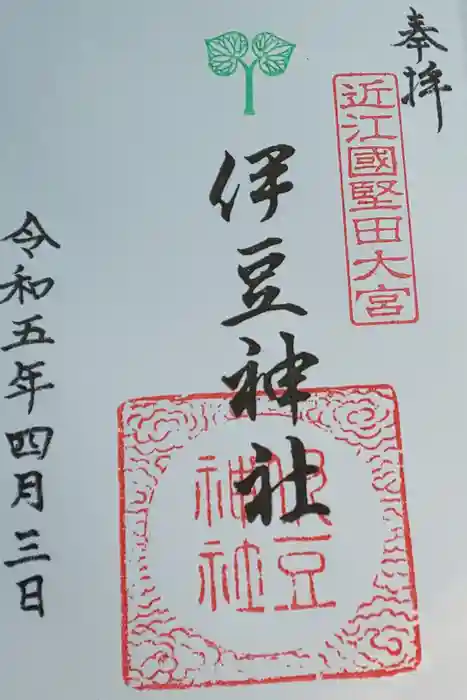 奉拝
近江國堅田大宮
伊豆神社
伊豆
神社
令和五年四月三日